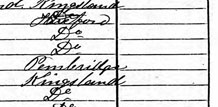 Kingsland
Hereford
Do
Do
Pembridge
Kingsland
Do
Do